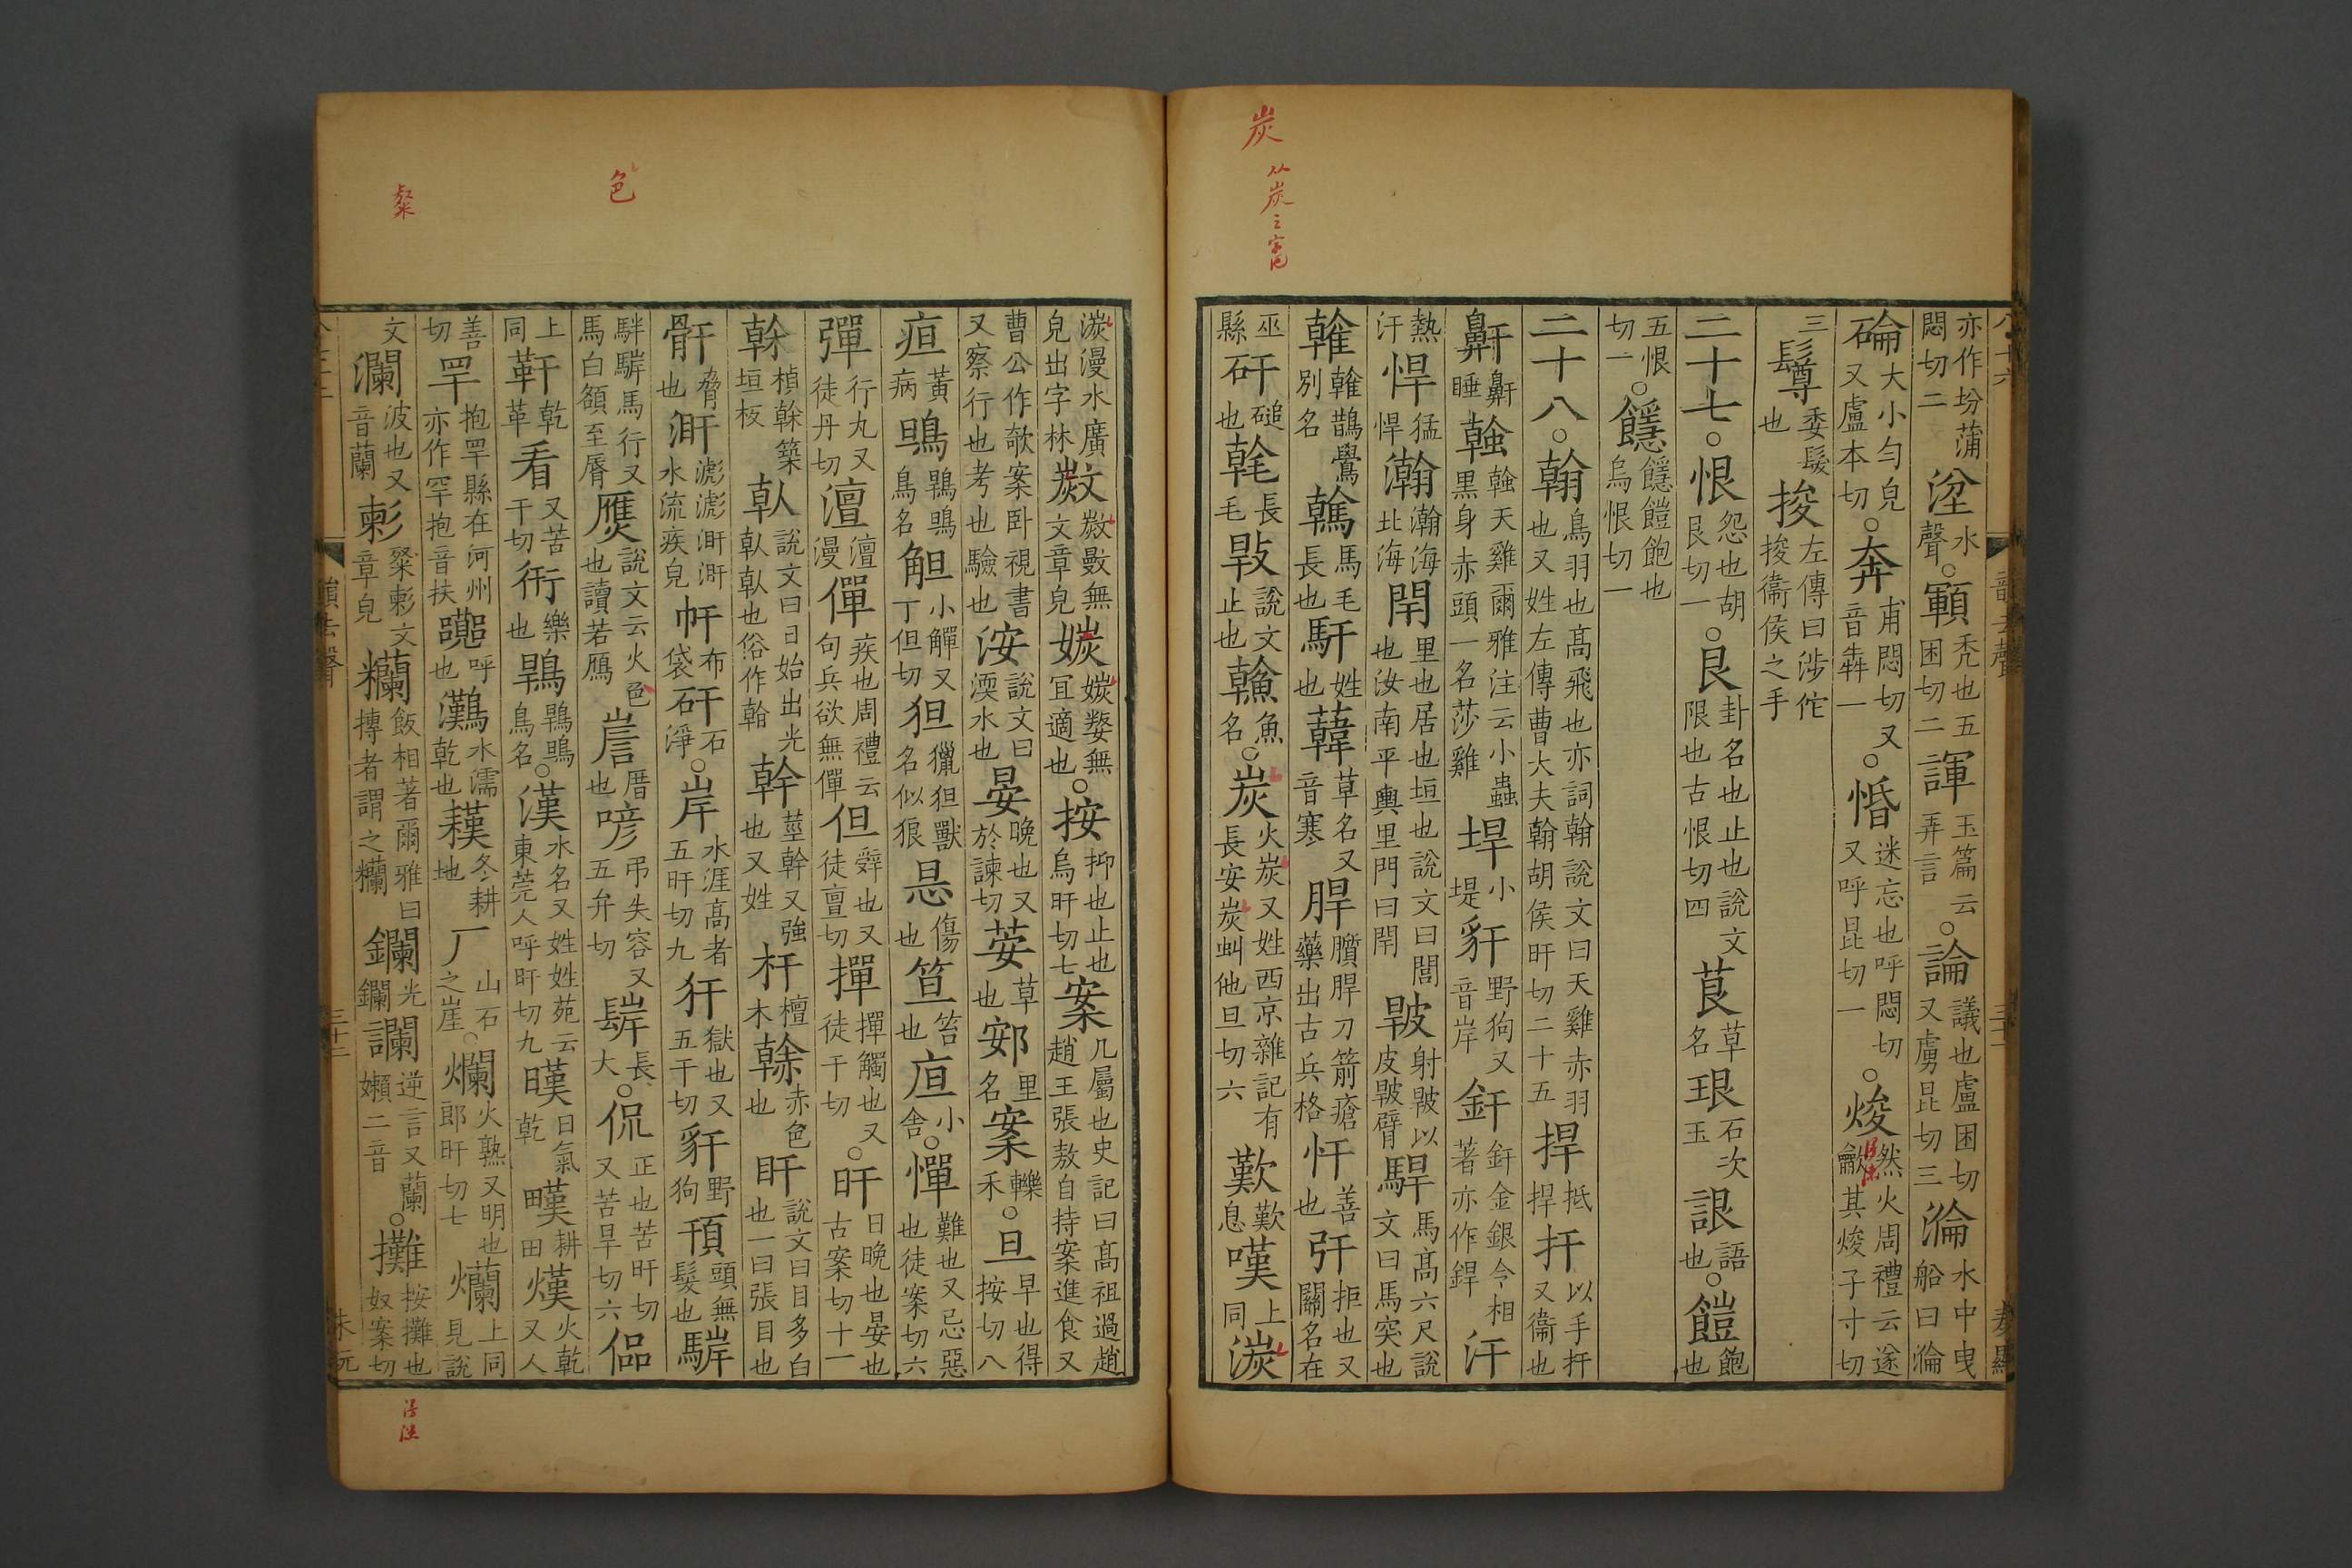 炭
从炭之字
亦作坋蒲悶切二坌水聲○顐禿也五困切二諢玉篇云弄言○論議也盧困切又虜昆切三淪水中曳船曰淪
碖大小勻皃又盧本切○奔甫悶切又音犇一○惛迷忘也呼悶切又呼昆切一○焌然火周禮云遂龡其焌子寸切
三鐏委髮也捘左傳曰涉佗捘衞侯之手
二十七○恨怨也胡艮切一○艮卦名也止也說文限也古恨切四茛草名珢石次玉詪語也○餼飽也
五恨切一○䭡䭡餼飽也烏恨切一
二十八○翰鳥羽也高飛也亦詞翰說文曰天雞赤羽也又姓左傳曹大夫翰胡侯旰切二十五捍抵捍扞以手扞又衞也
鼾鼾睡螒螒天雞爾雅注云小蟲黑身赤頭一名莎雞垾小堤豻野狗又音岸釬釬金銀令相著亦作銲汗
熱汗悍猛悍瀚瀚海北海閈里也居也垣也說文曰閭也汝南平輿里門曰閈䩲射䩲以皮䩲臂駻馬高六尺說文曰馬突也
雗雗鵲鷽別名䮧馬毛長也馯姓也䓿草名又音寒䏷膹䏷刀箭瘡藥出古兵格忓善也㢨拒也又關名在
巫縣矸磓也毨長毛㪋說文止也䲚魚名○炭火炭又姓西京雜記有長安炭虯他旦切六歎歎息嘆上同湠
湠漫水廣皃出字林㪱㪱敪無文章皃㜤㜤婺無宜適也○按抑也止也烏旰切七案几屬也史記曰高祖過趙趙王張敖自持案進食又
曹公作欹案臥視書又察行也考也驗也洝說文曰渜水也晏晚也又於諫切荌草也䢿里名案轢禾○旦早也得按切八
疸黃病鴠鶡鴠鳥名觛小觶又丁但切狚獵狚獸名似狼㫜傷也笪笞也㡺小舍○憚難也又忌惡也徒案切六
彈行丸又徒丹切澶澶漫僤疾也周禮云句兵欲無僤但辤也又徒亶切撣撣觸也又徒干切○旰日晚也晏也古案切十一
榦楨榦築垣板倝說文曰日始出光倝倝也俗作𠦝幹莖幹又強也又姓杆檀木𧹳赤色也盰說文曰目多白也一曰張目也
骭脅也㶥滮滮㶥㶥水流疾皃㡾布袋矸石淨○岸水涯高者五旰切九犴獄也又五干切豻野狗頇頭無髮也䮗
䮗䮗馬行又馬白額至脣㷳說文云火色也讀若鴈㟁厓也喭弔失容又五弁切䮗長大○侃正也苦旰切又苦旱切六偘
上同靬乾革看又苦干切衎樂也鶡鶡鴠鳥名○漢水名又姓姓苑云東莞人呼旰切九暵日氣乾㬮耕田熯火乾又人
善切䍐抱䍐縣在河州亦作罕抱音扶㘚呼也㶏水濡乾也䎬冬耕地厂山石之崖○爛火熟又明也郎旰切七爤上同見說
文瀾波也又音蘭㓓粲㓓文章皃糷飯相著爾雅曰摶者謂之糷鑭光鑭讕逆言又蘭嬾二音○攤按攤也奴案切
色
粲